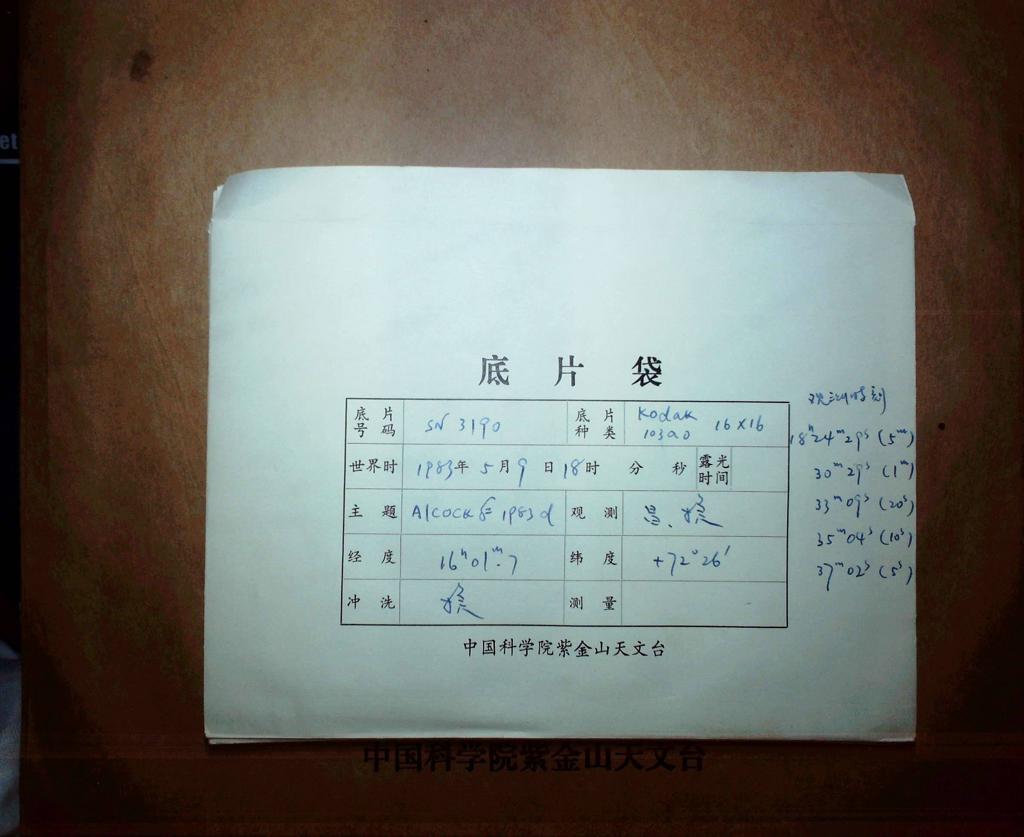 et
底片袋
底片号码 SN 3190 底片种类 Kodak 103aO 16×16
世界时 1983年 5月9日18时 分 秒 露光时间
主题 Alcock 1983d 观测
经度 16ʰ01ᵐ.7 纬度 +72°26′
冲洗 测量
中国科学院紫金山天文台
观测时刻
18ʰ24ᵐ29ˢ (5ᵐ)
30ᵐ29ˢ (1ᵐ)
33ᵐ09ˢ (20ˢ)
35ᵐ04ˢ (10ˢ)
37ᵐ02ˢ (5ˢ)
中国科学院紫金山天文台